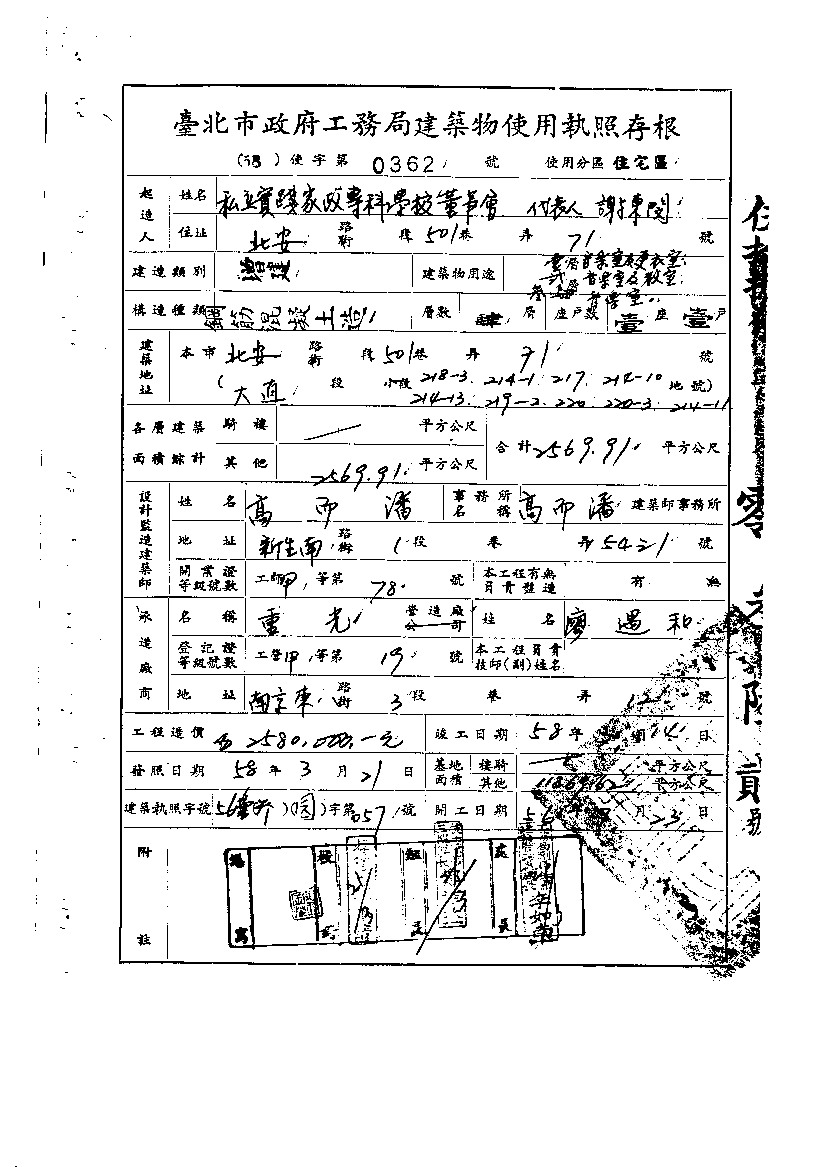 臺北市政府工務局建築物使用執照存根
(58) 使字第 0362 號 使用分區 住宅區
起造人 姓名 私立實踐家政專科學校董事會 代表人 謝東閔
住址 北安 路街 段 501巷 弄 71 號
建造類別 增建 建築物用途 音樂室及更衣室 音樂室及教室 音樂室
構造種類 鋼筋混凝土造 層數 肆 層 座戶數 壹 座 壹 戶
建築地址 本市 北安 路街 段 501巷 弄 71 號
(大直 段 小段 218-3. 214-1. 217. 214-10 地號)
214-13. 219-2. 220. 220-3. 214-11
各層建築面積綜計 騎樓 平方公尺 合計 2569.91 平方公尺
其他 2569.91 平方公尺
設計監造建築師 姓名 高而潘 事務所名稱 高而潘 建築師事務所
地址 新生南 路街 1 段 巷 弄 54-21 號
開業證等級號數 工師甲 等第 78 號 本工程有無負責監造 有 無
承造廠商 名稱 重光 營造廠公司 姓名 廖遇和
登記證等級號數 工營甲 等第 19 號 本工程負責技師(副)姓名
地址 南京東 路街 3 段 巷 弄 號
工程造價 2580,000.-元 竣工日期 58 年 月 14 日
發照日期 58 年 3 月 21 日 基地面積 樓騎 平方公尺
其他 平方公尺
建築執照字號 字第 057 號 開工日期 56 月 23 日
附註